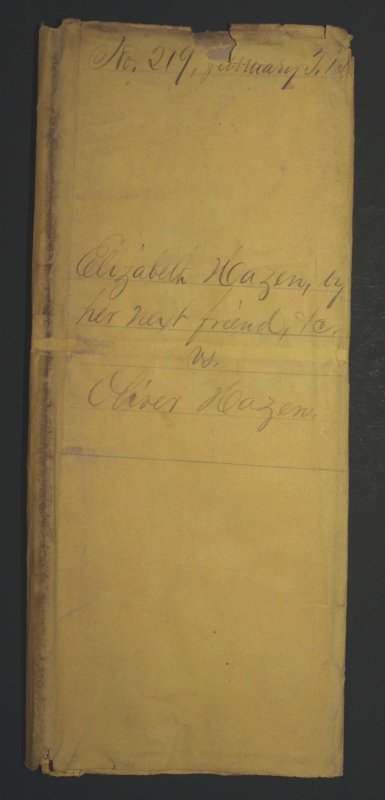 No. 219, February T. 18
Elizabeth Hazen, by
her next friend, &c.
vs.
Oliver Hazen.